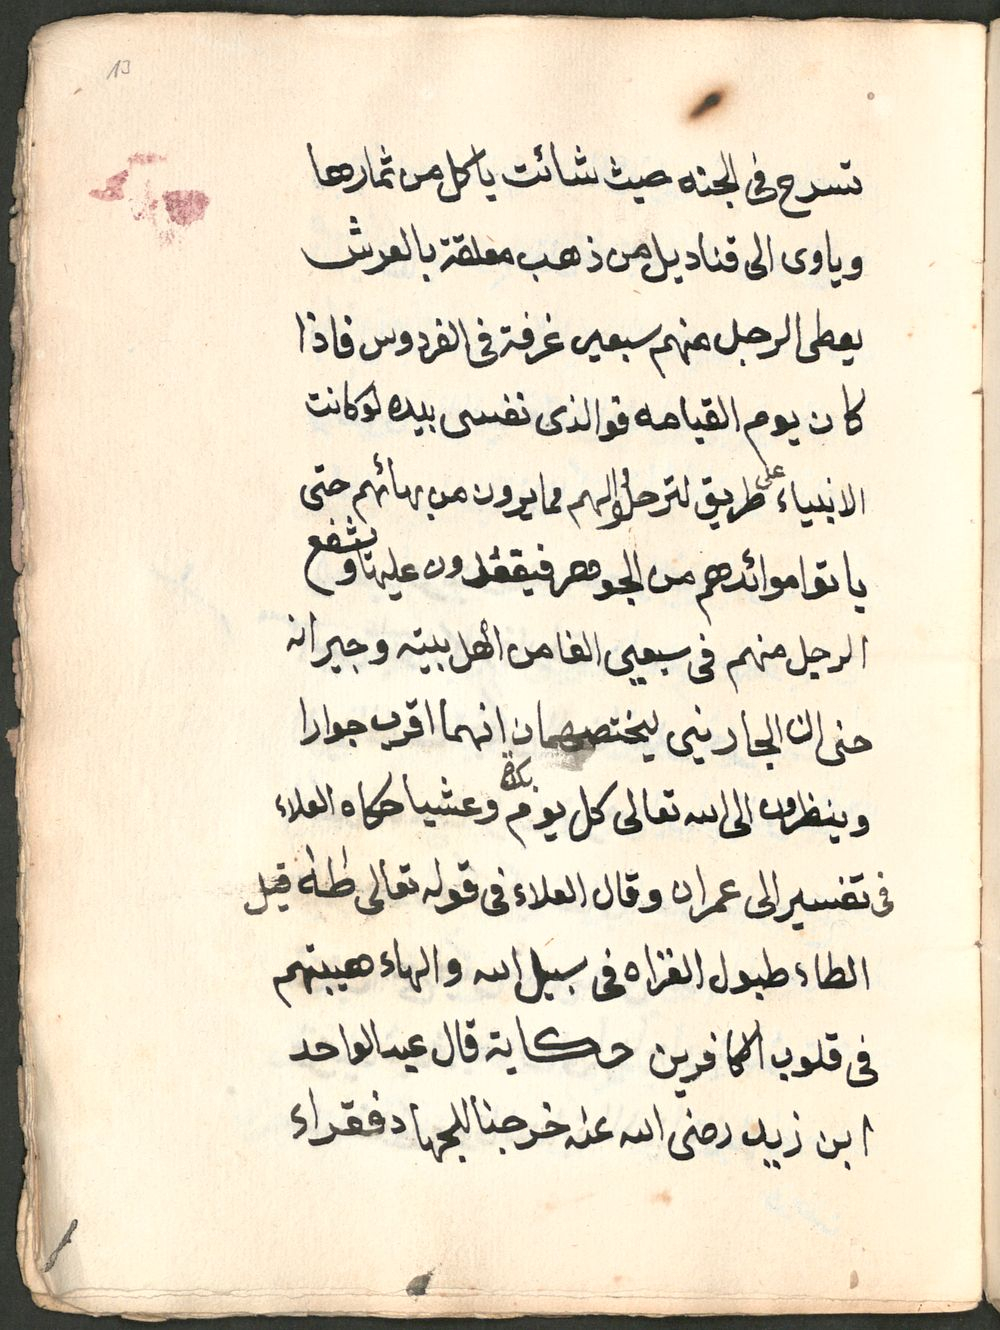 13
تسرح فى الجنه حيث شائت ياكل من ثمارها
وياوى الى قناديل من ذهب معلقة بالعرش
يعطى الرجل منهم سبعين غرفة فى الفردوس فاذا
كان يوم القيامه فوالذى نفسى بيده لوكانت
الانبياء على طريق لترجلوا لهم مما يرون من بهائهم حتى
ياتوا موائدهم من الجوهر فيقعدون عليها ويشفع
الرجل منهم فى سبعين الفا من أهل بيته وجيرانه
حتى ان الجارين ليختصمان انهما اقرب جوارا
وينظرون الى الله تعالى كل يوم بكرة وعشيا حكاه العلاء
فى تفسير الى عمران وقال العلاء فى قوله تعالى طه قيل
الطاء طبول الغزاه فى سبيل الله والهاء هيبتهم
فى قلوب الكافرين حكاية قال عبد الواحد
ابن زيد رضى الله عنه خرجنا للجهاد فقراء